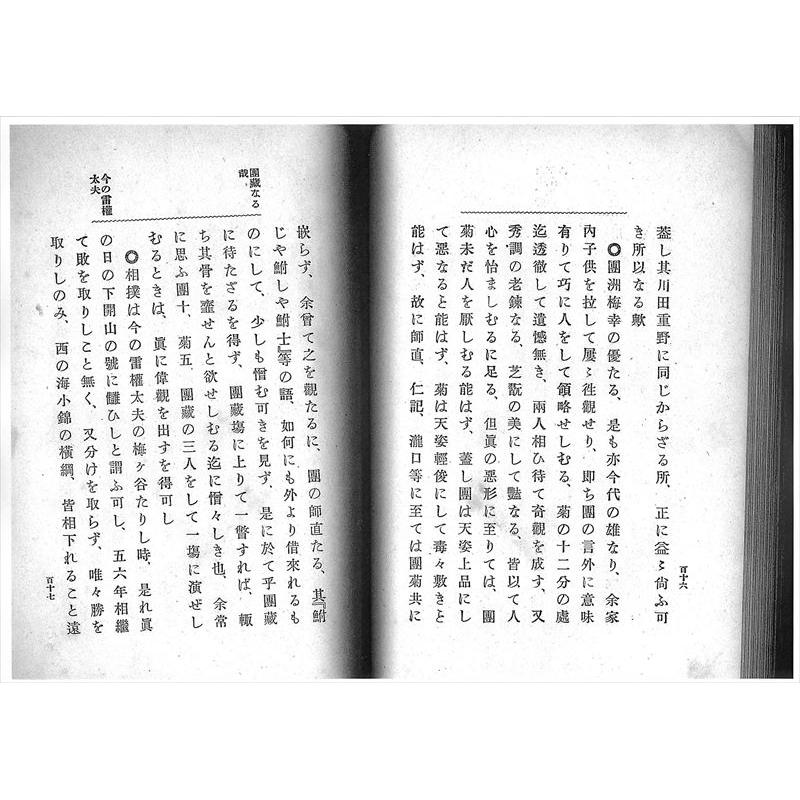 百十六
蓋し其川田重野に同じからざる所、正に益〻尙ふ可
き所以なる歟
◎團洲梅幸の優たる、是も亦今代の雄なり、余家
內子供を拉して屢〻徃觀せり、卽ち團の言外に意味
有りて巧に人をして領略せしむる、菊の十二分の處
迄透徹して遺憾無き、兩人相ひ待て奇觀を成す、又
秀調の老鍊なる、芝翫の美にして艷なる、皆以て人
心を怡ましむるに足る、但眞の惡形に至りては、團
菊未だ人を厭しむる能はず、蓋し團は天姿上品にし
て惡なると能はず、菊は天姿輕俊にして毒々敷きと
能はず、故に師直、仁記、瀧口等に至ては團菊共に
團藏なる
哉
今の雷權
太夫
嵌らず、余曾て之を觀たるに、團の師直たる、其『鮒
じや鮒しや鮒士』等の語、如何にも外より借來れるも
のにして、少しも惛む可きを見ず、是に於て乎團藏
に待たざるを得ず、團藏塲に上りて一瞥すれば、輙
ち其骨を齏せんと欲せしむる迄に憎々しき也、余常
に思ふ團十、菊五、團藏の三人をして一塲に演ぜし
むるときは、眞に偉觀を出すを得可し
◎相撲は今の雷權太夫の梅ヶ谷たりし時、是れ眞
の日の下開山の號に讎ひしと謂ふ可し、五六年相繼
て敗を取りしこと無く、又分けを取らず、唯々勝を
取りしのみ、西の海小錦の橫綱、皆相下れること遠
百十七